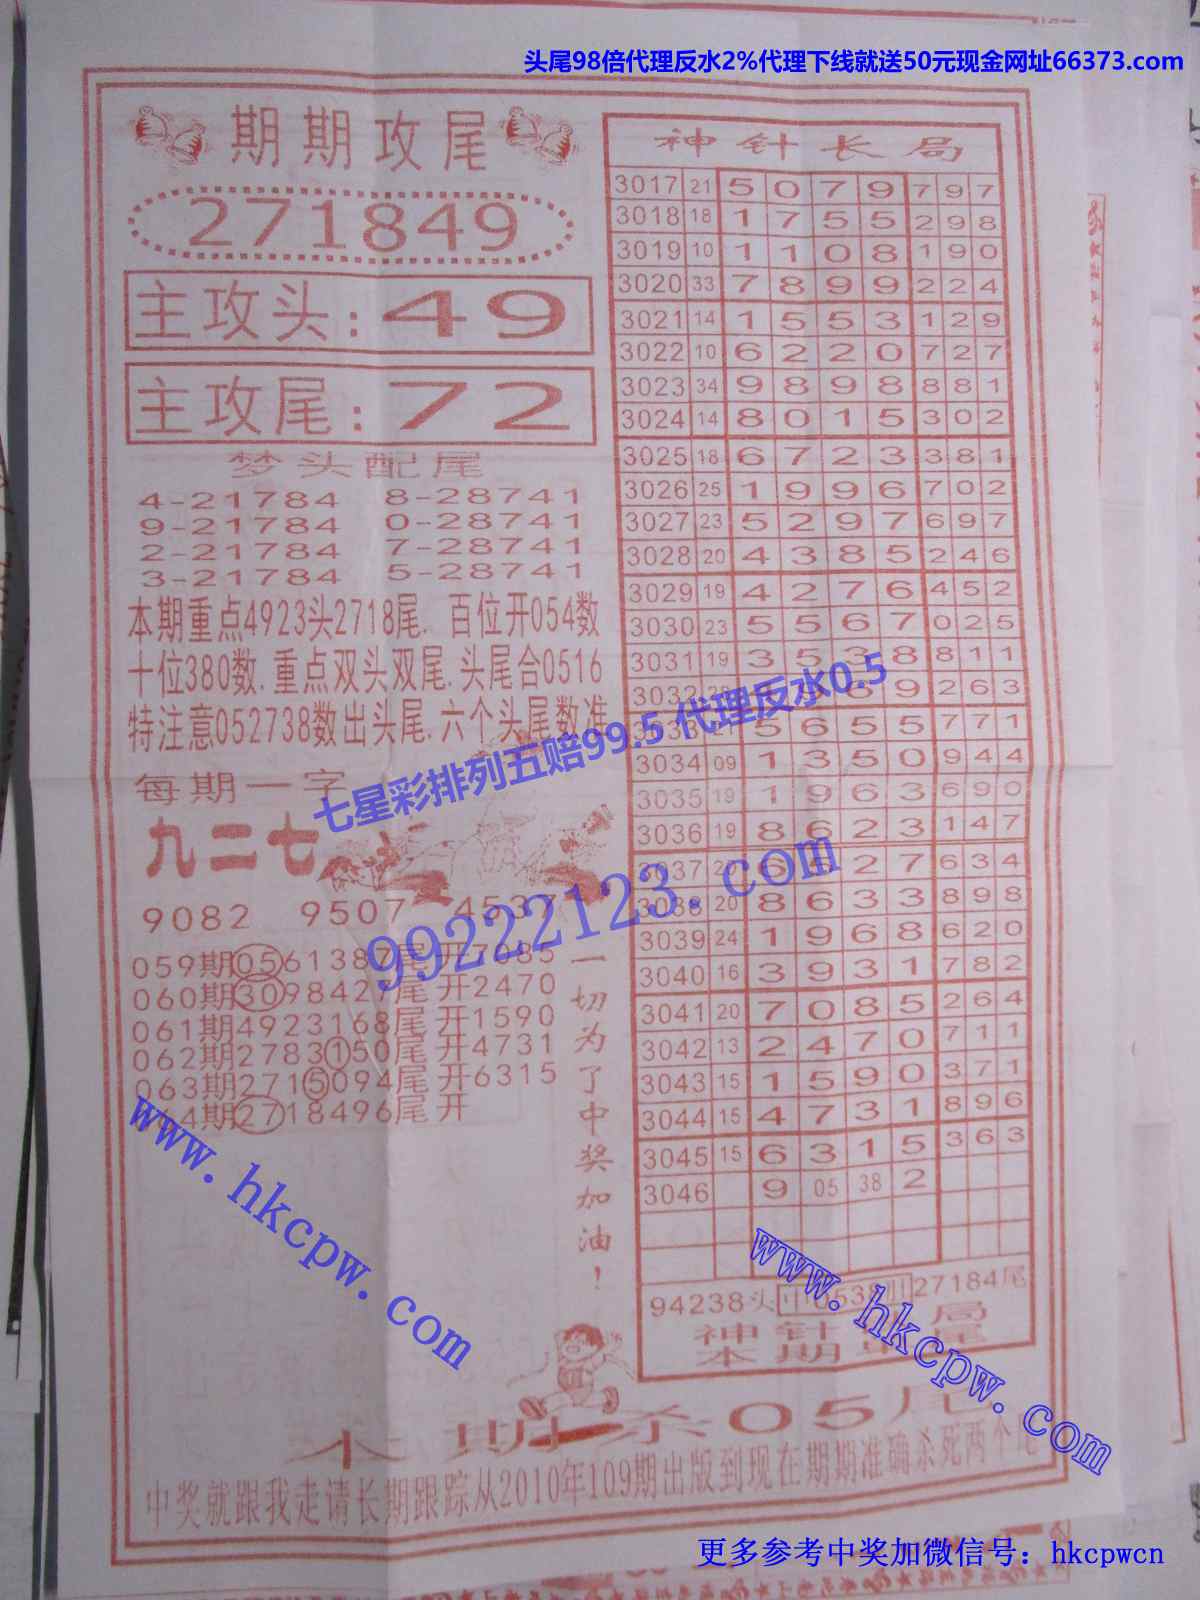 头尾98倍代理反水2%代理下线就送50元现金网址66373.com
期期攻尾
271849
主攻头：49
主攻尾：72
梦头配尾
4-21784 8-28741
9-21784 0-28741
2-21784 7-28741
3-21784 5-28741
本期重点4923头2718尾.百位开054数
十位380数.重点双头双尾.头尾合0516
特注意052738数出头尾.六个头尾数准
每期一字
九二七
9082 9507
059期0561387尾开7085
060期3098427尾开2470
061期4923168尾开1590
062期2783150尾开4731
063期2715094尾开6315
064期2718496尾开
一切为了中奖加油！
神针长局
3017 21 5 0 7 9 7 9 7
3018 18 1 7 5 5 2 9 8
3019 10 1 1 0 8 1 9 0
3020 33 7 8 9 9 2 2 4
3021 14 1 5 5 3 1 2 9
3022 10 6 2 2 0 7 2 7
3023 34 9 8 9 8 8 8 1
3024 14 8 0 1 5 3 0 2
3025 18 6 7 2 3 3 8 1
3026 25 1 9 9 6 7 0 2
3027 23 5 2 9 7 6 9 7
3028 20 4 3 8 5 2 4 6
3029 19 4 2 7 6 4 5 2
3030 23 5 5 6 7 0 2 5
3031 19 3 5 3 8 8 1 1
3032 9 2 6 3
3033 21 5 6 5 5 7 7 1
3034 09 1 3 5 0 9 4 4
3035 19 1 9 6 3 6 9 0
3036 19 8 6 2 3 1 4 7
3037 6 2 7 6 3 4
3038 20 8 6 3 3 8 9 8
3039 24 1 9 6 8 6 2 0
3040 16 3 9 3 1 7 8 2
3041 20 7 0 8 5 2 6 4
3042 13 2 4 7 0 7 1 1
3043 15 1 5 9 0 3 7 1
3044 15 4 7 3 1 8 9 6
3045 15 6 3 1 5 3 6 3
3046 9 05 38 2
94238头中0538肚27184尾
神针 局
本期 尾
本期杀05尾
中奖就跟我走请长期跟踪从2010年109期出版到现在期期准确杀死两个尾
七星彩排列五赔99.5 代理反水0.5
99222123.com
www.hkcpw.com
www.hkcpw.com
更多参考中奖加微信号：hkcpwcn